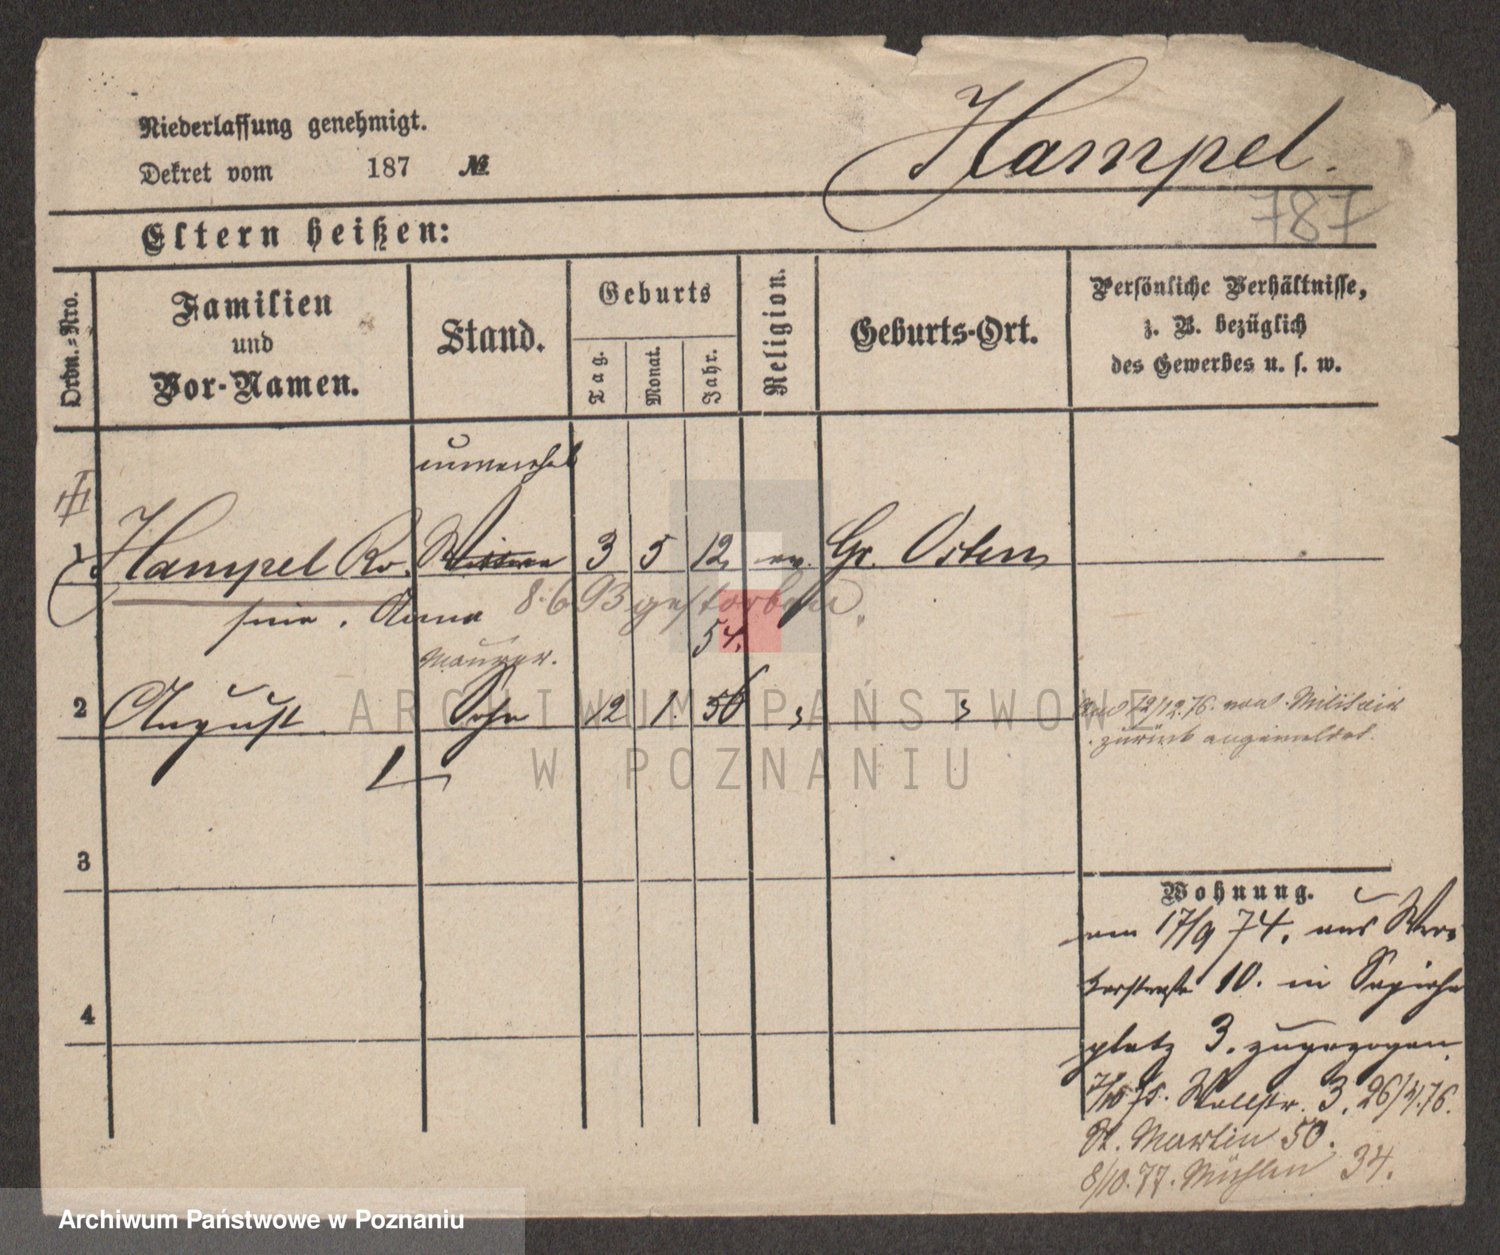 Niederlassung genehmigt.
Dekret vom 187 №
Hampel.
787
Eltern heißen:
Ordn.=Nro.
Familien
und
Vor-Namen.
Stand.
Geburts
Tag.
Monat.
Jahr.
Religion.
Geburts-Ort.
Persönliche Verhältnisse,
z. B. bezüglich
des Gewerbes u. s. w.
unverehel
1 Hampel Ro. Wittwe 3 5 12 ev. Gr. Osten
sine. Anna 8.6 93 gestorben.
54.
Maurer.
2 August Sohn 12 1. 56
12/12.76. vom Militair
zurück angemeldet.
3
4
Wohnung.
am 17/9 74. aus
10. in Sapieha
platz 3. zugezogen.
Wallstr. 3. 26/4.76.
St. Martin 50.
8/10.77. Mühlen 34.
ARCHIWUM PAŃSTWOWE
W POZNANIU
Archiwum Państwowe w Poznaniu